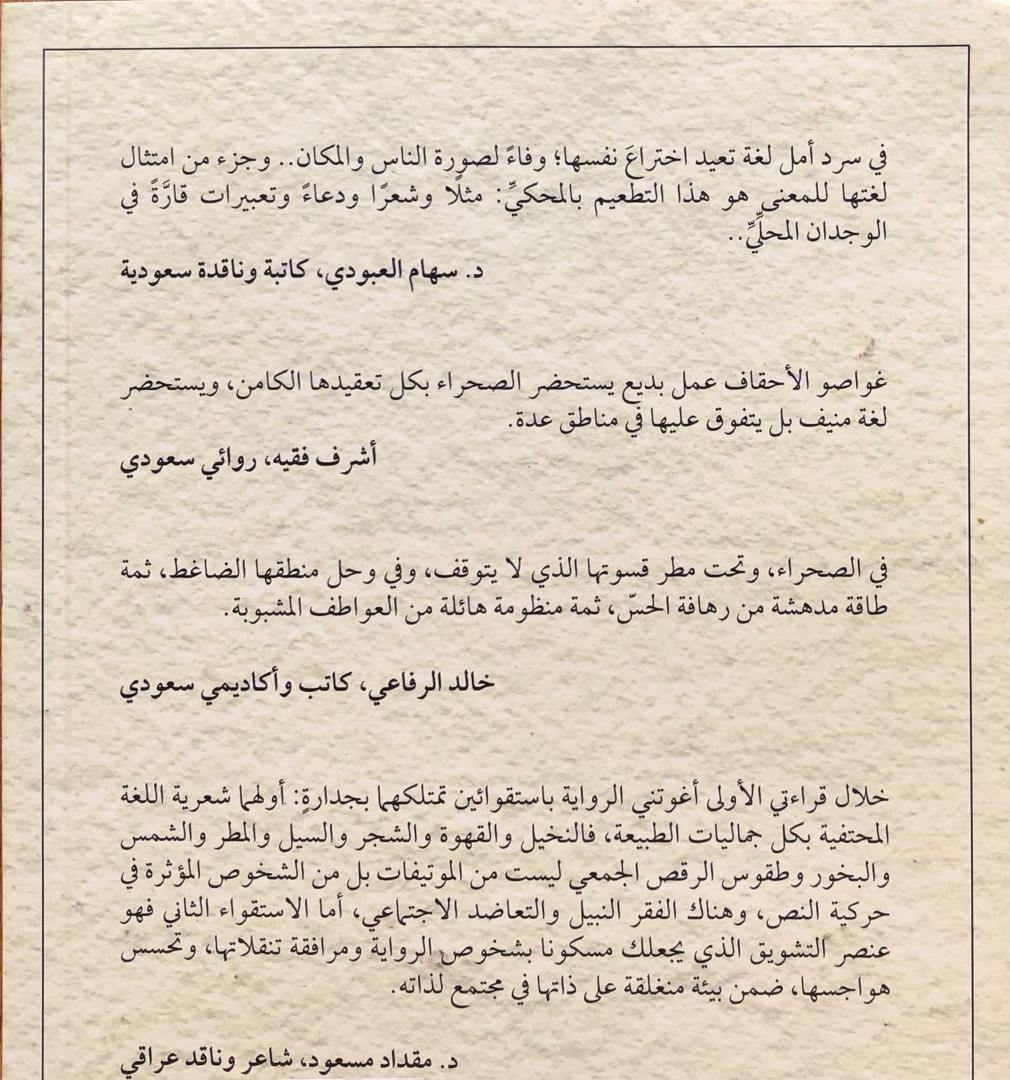 في سرد أمل لغة تعيد اختراعَ نفسها؛ وفاءً لصورة الناس والمكان.. وجزء من امتثال
لغتها للمعنى هو هذا التطعيم بالمحكيِّ: مثلًا وشعرًا ودعاءً وتعبيرات قارَّةً في
الوجدان المحلِّيِّ..
د. سهام العبودي، كاتبة وناقدة سعودية
غواصو الأحقاف عمل بديع يستحضر الصحراء بكل تعقيدها الكامن، ويستحضر
لغة منيف بل يتفوق عليها في مناطق عدة.
أشرف فقيه، روائي سعودي
في الصحراء، وتحت مطر قسوتها الذي لا يتوقف، وفي وحل منطقها الضاغط، ثمة
طاقة مدهشة من رهافة الحسّ، ثمة منظومة هائلة من العواطف المشبوبة.
خالد الرفاعي، كاتب وأكاديمي سعودي
خلال قراءتي الأولى أغوتني الرواية باستقوائين تمتلكهما بجدارةٍ: أولهما شعرية اللغة
المحتفية بكل جماليات الطبيعة، فالنخيل والقهوة والشجر والسيل والمطر والشمس
والبخور وطقوس الرقص الجمعي ليست من الموتيفات بل من الشخوص المؤثرة في
حركية النص، وهناك الفقر النبيل والتعاضد الاجتماعي، أما الاستقواء الثاني فهو
عنصر التشويق الذي يجعلك مسكونا بشخوص الرواية ومرافقة تنقلاتها، وتحسس
هواجسها، ضمن بيئة منغلقة على ذاتها في مجتمع لذاته.
د. مقداد مسعود، شاعر وناقد عراقي